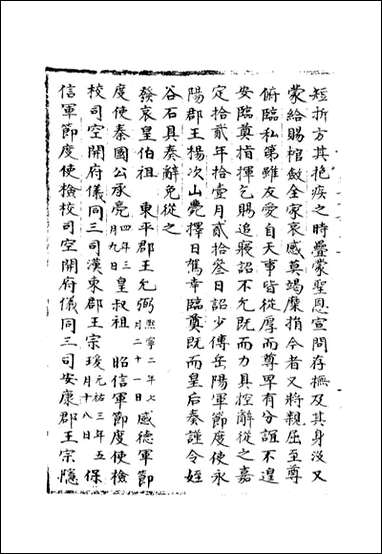 短折方其抱疾之時疊蒙聖恩宣問存撫及其身沒又
蒙給賜棺斂全家哀感莫竭糜捐今者又將親屈至尊
俯臨私第雖友愛自天事皆從厚而尊卑有分誼不遑
安臨奠指揮乞賜追寢詔不允既而力具控辭從之嘉
定拾貳年拾壹月貳拾叁日詔少傅岳陽軍節度使永
陽郡王楊次山薨擇日駕幸臨奠既而皇后奏謹令姪
谷石具奏辭免從之
發哀皇伯祖 東平郡王允弼熙寧二年七月二十一日感德軍節
度使秦國公承亮四年三月九日皇叔祖 昭信軍節度使檢
校司空開府儀同三司漢東郡王宗瑗元祐三年五月十八日保
信軍節度使檢校司空開府儀同三司安康郡王宗隱